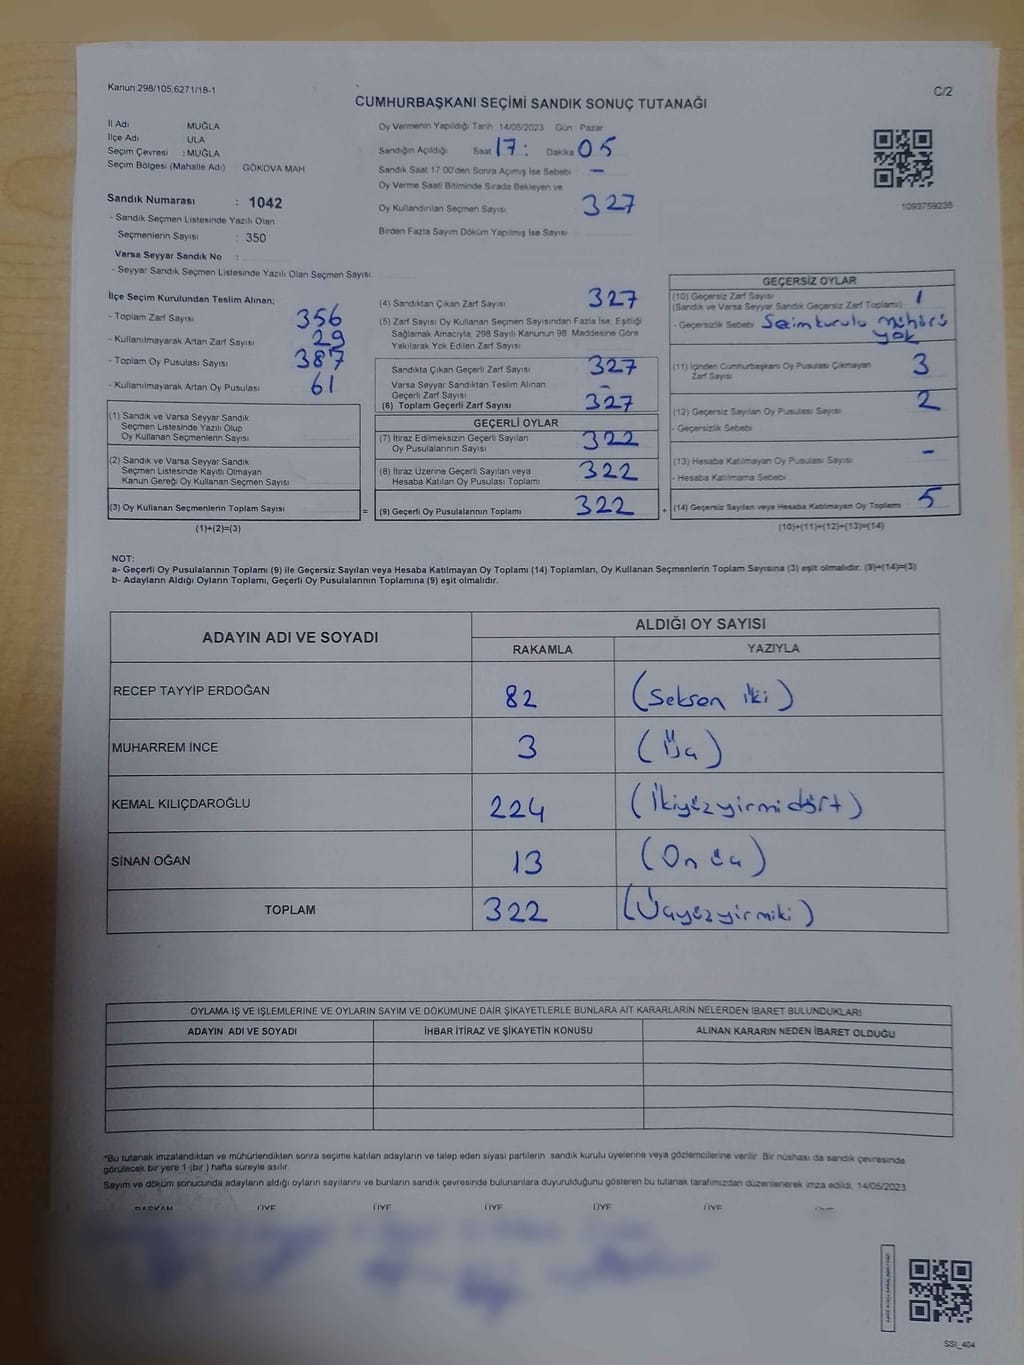 Kanun:298/105,6271/18-1
C/2
CUMHURBAŞKANI SEÇİMİ SANDIK SONUÇ TUTANAĞI
İl Adı MUĞLA
İlçe Adı ULA
Seçim Çevresi : MUĞLA
Seçim Bölgesi (Mahalle Adı) GÖKOVA MAH
Sandık Numarası : 1042
- Sandık Seçmen Listesinde Yazılı Olan
Seçmenlerin Sayısı : 350
Varsa Seyyar Sandık No :
- Seyyar Sandık Seçmen Listesinde Yazılı Olan Seçmen Sayısı:
Oy Vermenin Yapıldığı Tarih 14/05/2023 Gün Pazar
Sandığın Açıldığı Saat 17: Dakika 05
Sandık Saat 17:00'den Sonra Açımış İse Sebebi -
Oy Verme Saati Bitiminde Sırada Bekleyen ve
Oy Kullandırılan Seçmen Sayısı 327
Birden Fazla Sayım Döküm Yapılmış İse Sayısı
1093759236
İlçe Seçim Kurulundan Teslim Alınan;
- Toplam Zarf Sayısı 356
- Kullanılmayarak Artan Zarf Sayısı 29
- Toplam Oy Pusulası Sayısı 387
- Kullanılmayarak Artan Oy Pusulası 61
(1) Sandık ve Varsa Seyyar Sandık
Seçmen Listesinde Yazılı Olup
Oy Kullanan Seçmenlerin Sayısı
(2) Sandık ve Varsa Seyyar Sandık
Seçmen Listesinde Kayıtlı Olmayan
Kanun Gereği Oy Kullanan Seçmen Sayısı
(3) Oy Kullanan Seçmenlerin Toplam Sayısı
(1)+(2)=(3)
=
(4) Sandıktan Çıkan Zarf Sayısı 327
(5) Zarf Sayısı Oy Kullanan Seçmen Sayısından Fazla İse, Eşitliği
Sağlamak Amacıyla, 298 Sayılı Kanunun 98. Maddesine Göre
Yakılarak Yok Edilen Zarf Sayısı
Sandıkta Çıkan Geçerli Zarf Sayısı 327
Varsa Seyyar Sandıktan Teslim Alınan
Geçerli Zarf Sayısı -
(6) Toplam Geçerli Zarf Sayısı 327
GEÇERLİ OYLAR
(7) İtiraz Edilmeksizin Geçerli Sayılan
Oy Pusulalarının Sayısı 322
(8) İtiraz Üzerine Geçerli Sayılan veya
Hesaba Katılan Oy Pusulası Toplamı 322
(9) Geçerli Oy Pusulalarının Toplamı 322
+
GEÇERSİZ OYLAR
(10) Geçersiz Zarf Sayısı
(Sandık ve Varsa Seyyar Sandık Geçersiz Zarf Toplamı) 1
- Geçersizlik Sebebi Seimkurulu mühürü
yok
(11) İçinden Cumhurbaşkanı Oy Pusulası Çıkmayan
Zarf Sayısı 3
(12) Geçersiz Sayılan Oy Pusulası Sayısı 2
- Geçersizlik Sebebi
(13) Hesaba Katılmayan Oy Pusulası Sayısı -
- Hesaba Katılmama Sebebi
(14) Geçersiz Sayılan veya Hesaba Katılmayan Oy Toplamı 5
(10)+(11)+(12)+(13)=(14)
NOT:
a- Geçerli Oy Pusulalarının Toplamı (9) ile Geçersiz Sayılan veya Hesaba Katılmayan Oy Toplamı (14) Toplamları, Oy Kullanan Seçmenlerin Toplam Sayısına (3) eşit olmalıdır. (9)+(14)=(3)
b- Adayların Aldığı Oyların Toplamı, Geçerli Oy Pusulalarının Toplamına (9) eşit olmalıdır.
ADAYIN ADI VE SOYADI
ALDIĞI OY SAYISI
RAKAMLA YAZIYLA
RECEP TAYYİP ERDOĞAN 82 (Seksen iki)
MUHARREM İNCE 3 (Üç)
KEMAL KILIÇDAROĞLU 224 (İkiyüzyirmidört)
SİNAN OĞAN 13 (On üç)
TOPLAM 322 (Üçyüzyirmiki)
OYLAMA İŞ VE İŞLEMLERİNE VE OYLARIN SAYIM VE DÖKÜMÜNE DAİR ŞİKAYETLERLE BUNLARA AİT KARARLARIN NELERDEN İBARET BULUNDUKLARI
ADAYIN ADI VE SOYADI İHBAR İTİRAZ VE ŞİKAYETİN KONUSU ALINAN KARARIN NEDEN İBARET OLDUĞU
*Bu tutanak imzalandıktan ve mühürlendikten sonra seçime katılan adayların ve talep eden siyasi partilerin sandık kurulu üyelerine veya gözlemcilerine verilir. Bir nüshası da sandık çevresinde
görülecek bir yere 1 (bir ) hafta süreyle asılır.
Sayım ve döküm sonucunda adayların aldığı oyların sayılarını ve bunların sandık çevresinde bulunanlara duyurulduğunu gösteren bu tutanak tarafımızdan düzenlenerek imza edildi. 14/05/2023
BAŞKAN ÜYE ÜYE ÜYE ÜYE ÜYE
SSI_404